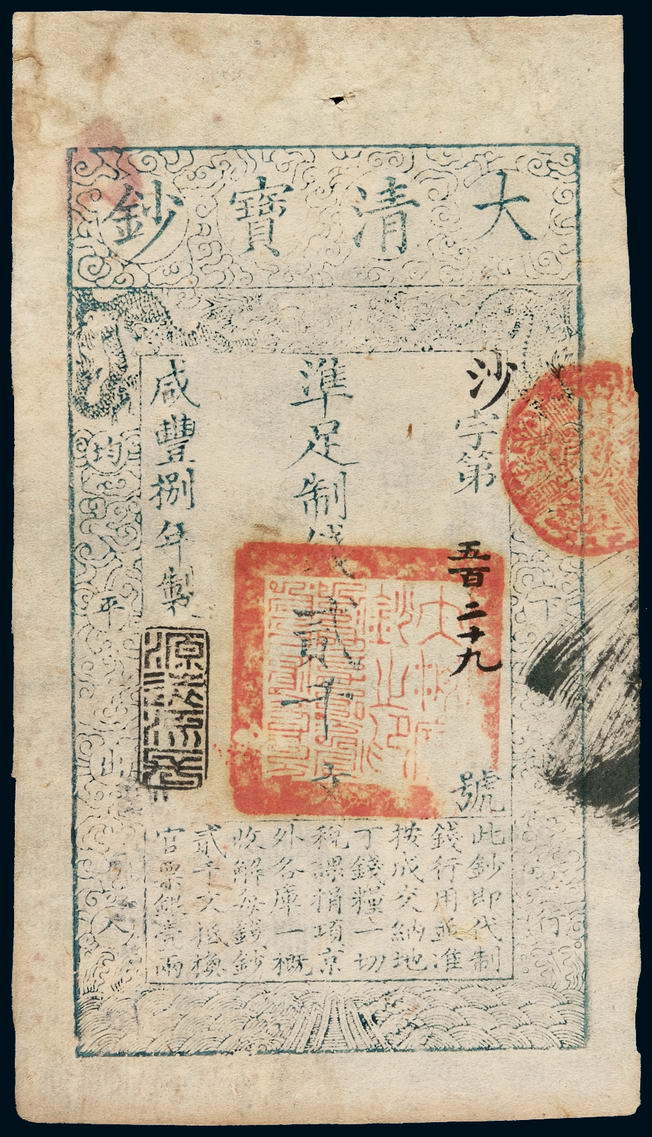 大清寶鈔
沙字第五百二十九號
準足制錢貳千文
咸豐捌年製
源遠流長
大清寶鈔之印
下
行
均平出入
此鈔即代制
錢行用並准
按成交納地
丁錢糧一切
稅課捐項京
外各庫一概
收解每錢鈔
貳千文抵換
官票銀壹兩